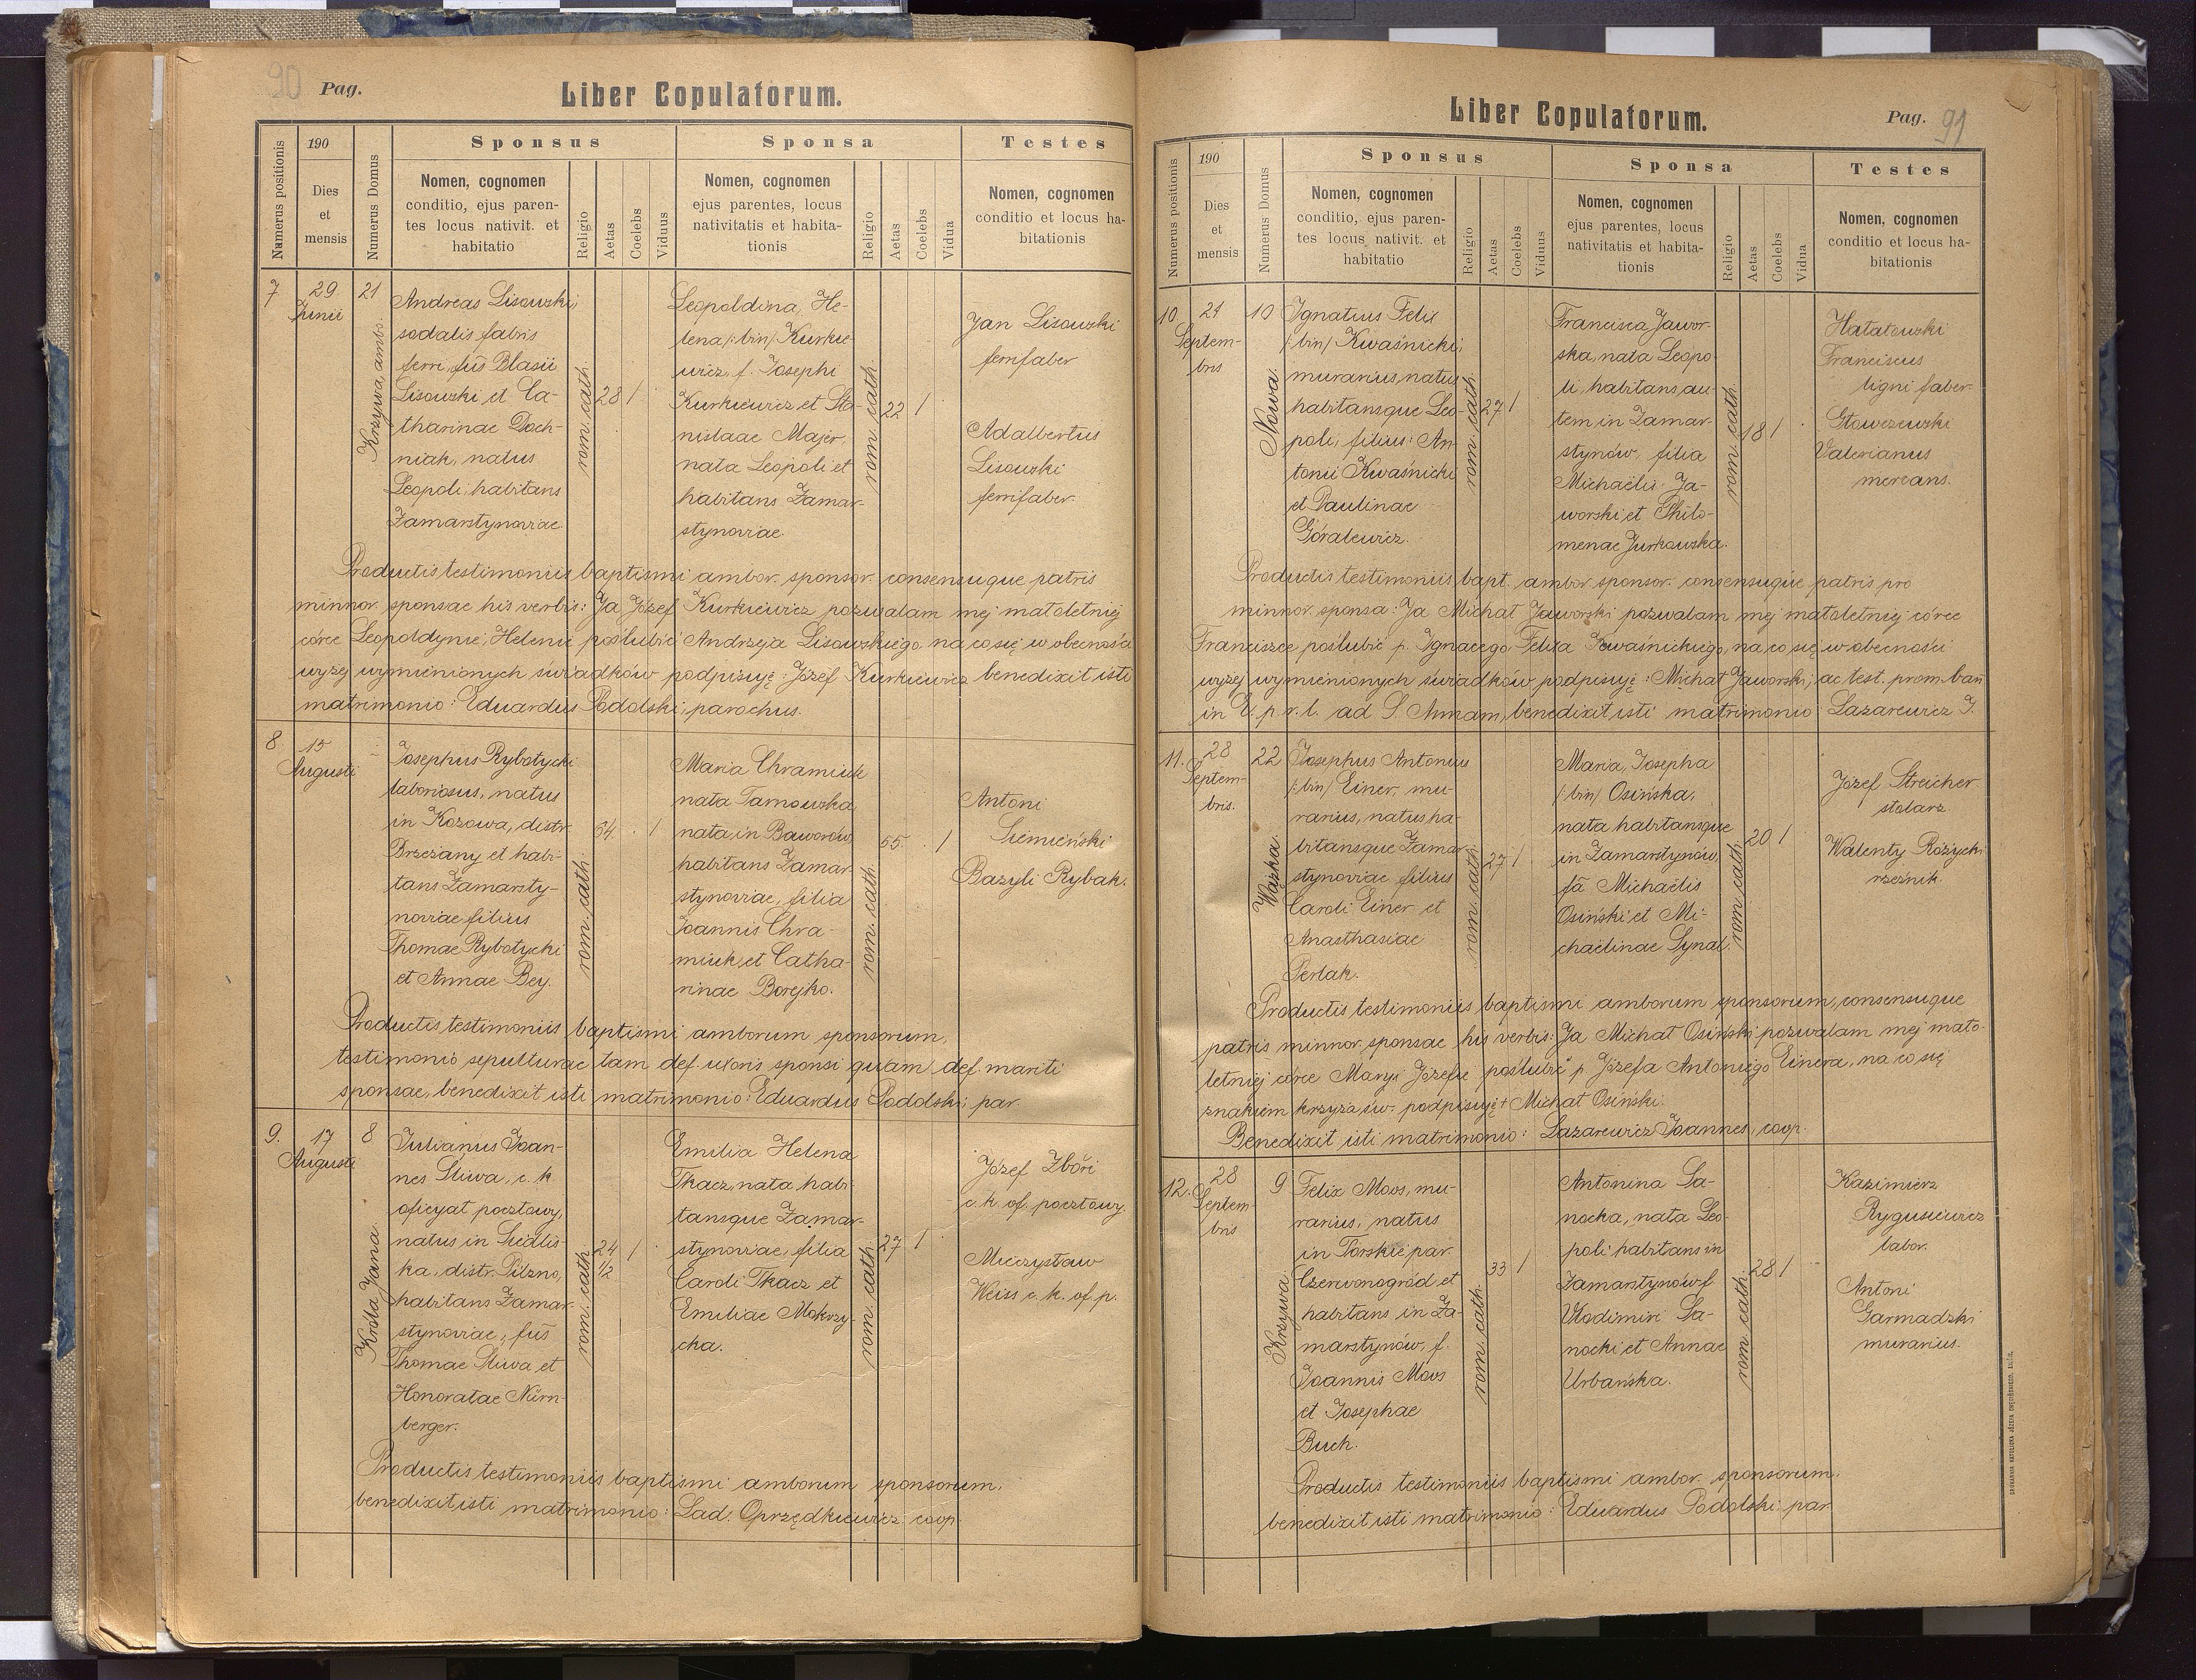 90 Pag.
Liber Copulatorum.
Numerus positionis
190
Dies
et
mensis
Numerus Domus
Sponsus
Nomen, cognomen
conditio, ejus paren-
tes locus nativit. et
habitatio
Religio
Aetas
Coelebs
Viduus
Sponsa
Nomen, cognomen
ejus parentes, locus
nativitatis et habita-
tionis
Religio
Aetas
Coelebs
Vidua
Testes
Nomen, cognomen
conditio et locus ha-
bitationis
7
29
Junii
21
Krzywa, ambo.
Andreas Lisowski,
sodalis fabris
ferri, fus Blasii
Lisowski et Ca-
tharinae Doch-
niak, natus
Leopoli, habitans
Zamarstynoviae.
rom. cath.
28
1
Leopoldina, He-
lena /:bin/ Kurkie-
wicz, f. Josephi
Kurkiewicz et Sta-
nislaae Majer,
nata Leopoli et
habitans Zamar-
stynoviae.
rom. cath.
22
1
Jan Lisowski
ferrifaber
Adalbertus
Lisowski
ferrifaber.
Productis testimoniis baptismi ambor. sponsor. consensuque patris
minnor. sponsae his verbis: Ja Józef Kurkiewicz pozwalam mej małoletniej
córce Leopoldynie, Helenie poślubić Andrzeja Lisowskiego na co się w obecności
wyżej wymienionych świadków podpisuję: Józef Kurkiewicz benedixit isti
matrimonio: Eduardus Podolski, parochus.
8.
15
Augusti
Josephus Rybotycki
laboriosus, natus
in Kozowa, distr.
Brzeżany et habi-
tans Zamarsty-
noviae filius
Thomae Rybotycki
et Annae Bey.
rom. cath.
64.
1
Maria Chramiuk
nata Tarnowska
nata in Baworów,
habitans Zamar-
stynoviae, filia
Joannis Chra-
miuk et Catha-
rinae Borejko.
rom. cath.
55.
1
Antoni
Siemieński
Bazyli Rybak.
Productis testimoniis baptismi amborum sponsorum,
testimonio sepulturae tam def. uxoris sponsi quam def. mariti
sponsae, benedixit isti matrimonio: Eduardus Podolski, par.
9.
17
Augusti
8
Króla Jana.
Julianus Joan-
nes Śliwa, c. k
oficyał pocztowy,
natus in Siedlis-
ka, distr. Pilzno,
habitans Zamar-
stynoviae, fus
Thomae Śliwa et
Honoratae Nürn-
berger.
rom. cath.
24
1/2
1
Emilia Helena
Tkacz, nata habi-
tansque Zamar-
stynoviae, filia
Caroli Tkacz et
Emiliae Mokrzy-
cka.
rom. cath.
27
1
Józef Zbőri
c. k. of. pocztowy.
Mieczysław
Weiss c. k. of. p.
Productis testimoniis baptismi amborum sponsorum.
benedixit isti matrimonio: Lad. Oprzędkiewicz coop.
Liber Copulatorum.
Pag. 91
Numerus positionis
190
Dies
et
mensis
Numerus Domus
Sponsus
Nomen, cognomen
conditio, ejus paren-
tes locus nativit. et
habitatio
Religio
Aetas
Coelebs
Viduus
Sponsa
Nomen, cognomen
ejus parentes, locus
nativitatis et habita-
tionis
Religio
Aetas
Coelebs
Vidua
Testes
Nomen, cognomen
conditio et locus ha-
bitationis
10.
21
Septem-
bris
10
Nowa.
Ignatius Felix
/:bin/ Kwaśnicki,
murarius, natus
habitansque Leo-
poli, filius: An-
tonii Kwaśnicki
et Paulinae
Góralewicz.
rom. cath.
27
1
Francisca Jawor-
ska, nata Leopo-
li, habitans au-
tem in Zamar-
stynów, filia
Michaëlis Ja-
worski et Philo-
menae Jurkowska.
rom. cath.
18
1
Hałatowski
Franciscus
ligni faber
Głowczewski
Valerianus
mercans.
Productis testimoniis bapt. ambor. sponsor. consensuque patris pro
minnor. sponsa: Ja Michał Jaworski pozwalam mej małoletniej córce
Franciszce poślubić p. Ignacego Felixa Kwaśnickiego, na co się w obecności
wyżej wymienionych świadków podpisuję: Michał Jaworski, ac test. prom. ban
in E. p. r. l. ad S. Annam, benedixit isti matrimonio: Lazarewicz J.
11.
28
Septem-
bris.
22
Wązka.
Josephus Antonius
/:bin/ Einer, mu-
rarius, natus ha-
bitansque Zamar-
stynoviae filius
Caroli Einer et
Anasthasiae
Perlak.
rom. cath.
27
1
Maria, Josepha
/:bin/ Osińska,
nata habitansque
in Zamarstynów,
fa Michaëlis
Osiński et Mi-
chaëlinae Synal.
rom. cath.
20
1
Józef Streicher
stolarz
Walenty Różycki
rzeźnik.
Productis testimoniis baptismi amborum sponsorum, consensuque
patris minnor. sponsae his verbis: Ja Michał Osiński pozwalam mej mało-
letniej córce Maryi Józefie poślubić p. Józefa Antoniego Einera, na co się
znakiem krzyża św. podpisuję + Michał Osiński.
Benedixit isti matrimonio: Lazarewicz Joannes, coop.
12.
28
Septem-
bris
9
Krzywa.
Felix Moos, mu-
rarius, natus
in Torskie par.
Czerwonogród et
habitans in Za-
marstynów, f.
Joannis Moos
et Josephae
Buch.
rom. cath.
33
1
Antonina Sa-
nocka, nata Leo-
poli habitans in
Zamarstynow f
Vlodimiri Sa-
nocki et Annae
Urbańska.
rom. cath.
28
1
Kazimierz
Rygusiewicz
labor.
Antoni
Garmadzki
murarius.
Productis testimoniis baptismi ambor. sponsorum.
benedixit isti matrimonio: Eduardus Podolski par.